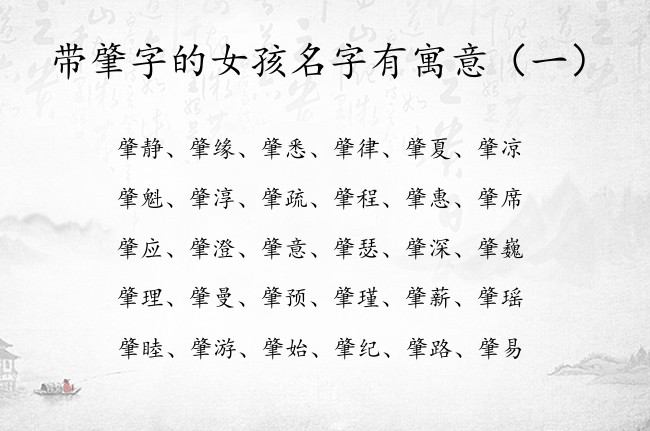 带肇字的女孩名字有寓意（一）
肇静、肇缘、肇悉、肇律、肇夏、肇凉
肇魁、肇淳、肇疏、肇程、肇惠、肇席
肇应、肇澄、肇意、肇瑟、肇深、肇巍
肇理、肇曼、肇预、肇瑾、肇薪、肇瑶
肇睦、肇游、肇始、肇纪、肇路、肇易